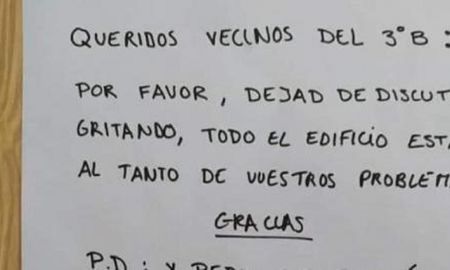 QUERIDOS VECINOS DEL 3°B :
POR FAVOR, DEJAD DE DISCUT
GRITANDO, TODO EL EDIFICIO EST
AL TANTO DE VUESTROS PROBLEM
GRACIAS
P.D : Y